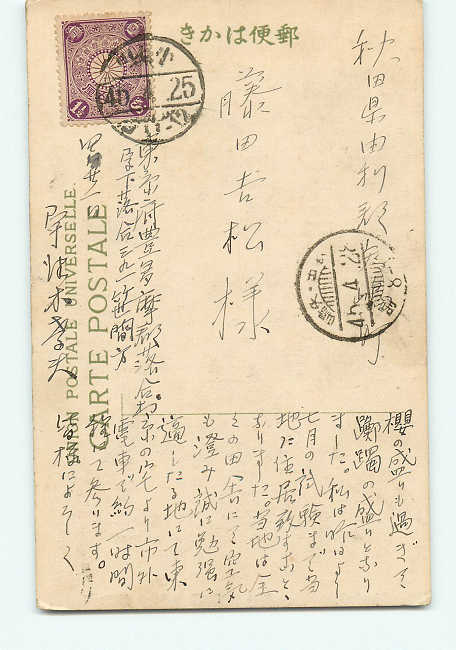 郵便はかき
UNION POSTALE UNIVERSELLE
CARTE POSTALE
45.4.25
45.4.28
秋田県由利郡
藤田吉松様
東京府豊多摩郡落合村
字下落合
笠間方
櫻の盛りも過ぎて
躑躅の盛りとなり
ました。私は昨日より
七月の試験まで当
地に住居致すこと
なりました。当地は全
くの田舎にて空気
も澄み誠に勉強に
適したる地にて東
京の宅より市外
電車で約一時間
餘で参ります。
皆様によろしく